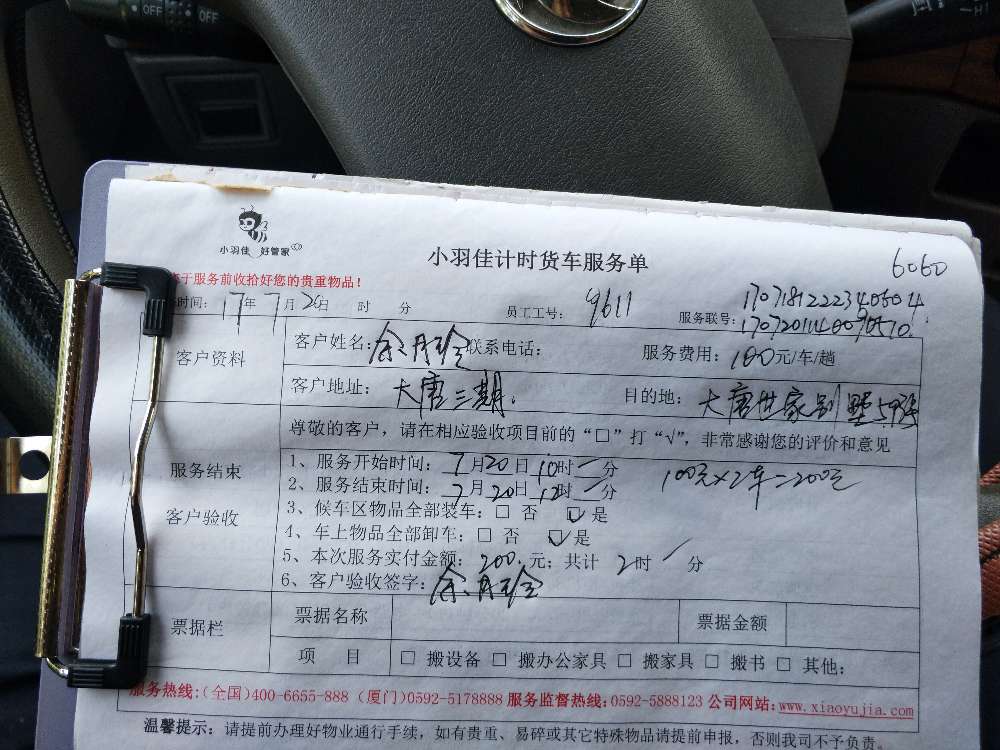 OFF OFF
小羽佳 好管家
小羽佳计时货车服务单
6060
于服务前收拾好您的贵重物品!
时间: 17年 7月 20日 时 分 员工工号: 9611 服务联号: 1707181222340604
1707201140090510
客户资料
客户姓名: 余月珍 联系电话: 服务费用: 100元/车/趟
客户地址: 大唐三期. 目的地: 大唐世家别墅59栋
尊敬的客户,请在相应验收项目前的“□”打“√”,非常感谢您的评价和意见
服务结束
客户验收
1、服务开始时间: 7月20日10时 分 100元×2车=200元
2、服务结束时间: 7月20日12时 分
3、候车区物品全部装车: □ 否 ☑ 是
4、车上物品全部卸车: □ 否 ☑ 是
5、本次服务实付金额: 200.元; 共计 2时 分
6、客户验收签字: 余月珍
票据栏 票据名称 票据金额
项 目 □ 搬设备 □ 搬办公家具 □ 搬家具 □ 搬书 □ 其他:
服务热线:(全国)400-6655-888 (厦门)0592-5178888 服务监督热线:0592-5888123 公司网站:www.xiaoyujia.com
温馨提示: 请提前办理好物业通行手续,如有贵重、易碎或其它特殊物品请提前申报,否则我司不予负责